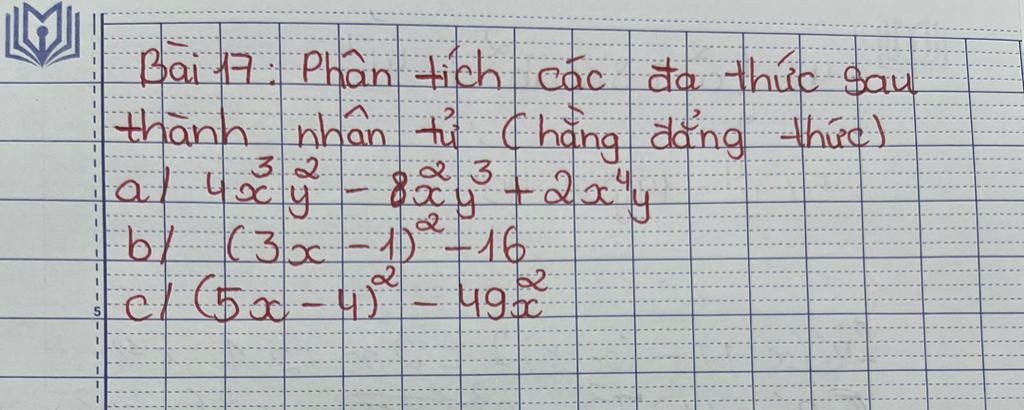 Bài 17: Phân tích các đa thức sau
thành nhân tử (hằng đẳng thức)
a/ 4x³y² - 8x²y³ + 2x⁴y
b/ (3x - 1)² - 16
c/ (5x - 4)² - 49x²
5